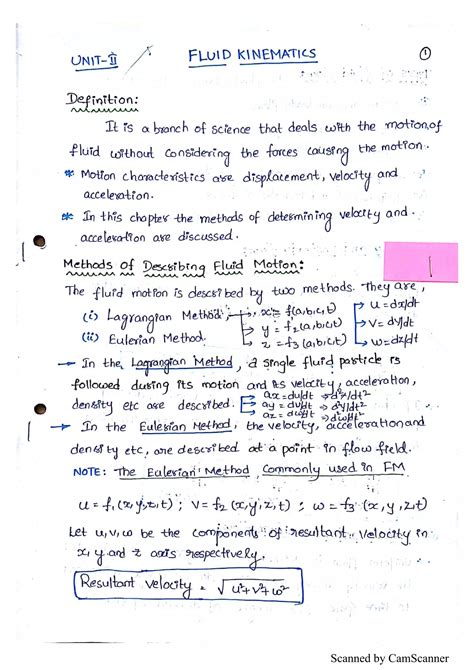 UNIT-II
FLUID KINEMATICS
1
Definition:
It is a branch of science that deals with the motion of
fluid without considering the forces causing the motion.
* Motion characteristics are displacement, velocity and
acceleration.
* In this chapter the methods of determining velocity and
acceleration are discussed.
Methods of Describing Fluid Motion:
The fluid motion is described by two methods. They are,
(i) Lagrangian Method; x = f(a,b,c,t) → u = dx/dt
(ii) Eulerian Method. y = f₂(a,b,c,t) → v = dy/dt
z = f₃(a,b,c,t) → w = dz/dt
→ In the Lagrangian Method, a single fluid particle is
followed during its motion and its velocity, acceleration,
density etc are described. ax = du/dt → d²x/dt²
ay = dv/dt → d²y/dt²
az = dw/dt →
→ In the Eulerian Method, the velocity, acceleration and
density etc, are described at a point in flow field.
NOTE: The Eulerian Method Commonly used in FM
u = f₁(x,y,z,t) ; v = f₂ (x,y,z,t) ; w = f₃ (x,y,z,t)
Let u,v,w be the components of resultant velocity in
x, y and z axis respectively.
Resultant velocity = √u²+v²+w²
Scanned by CamScanner